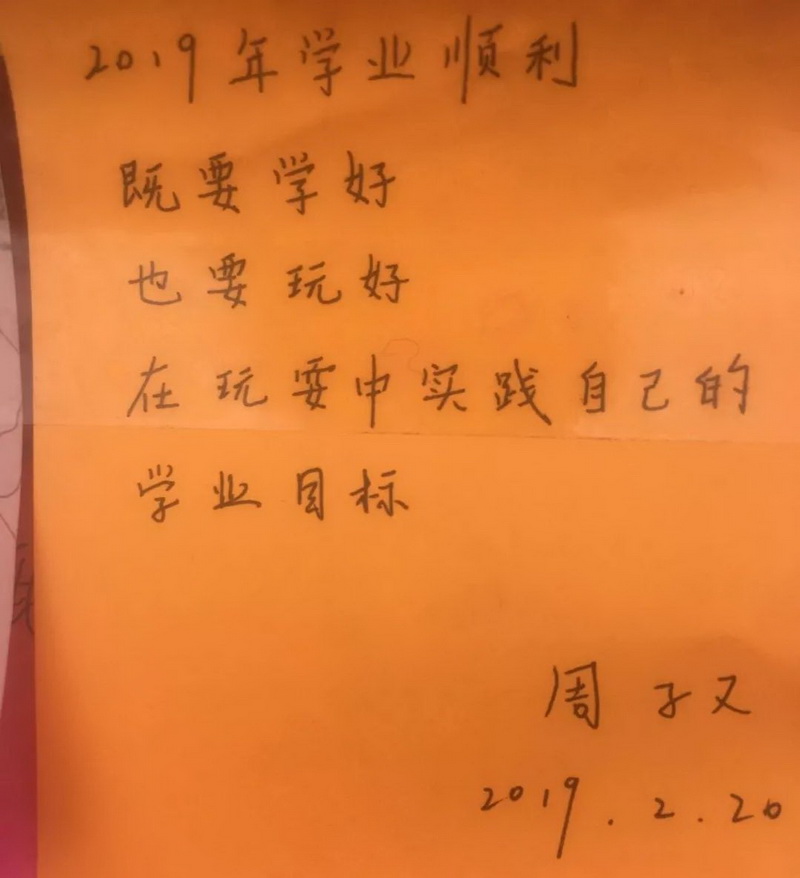 2019年学业顺利
既要学好
也要玩好
在玩耍中实践自己的
学业目标
周子又
2019.2.20